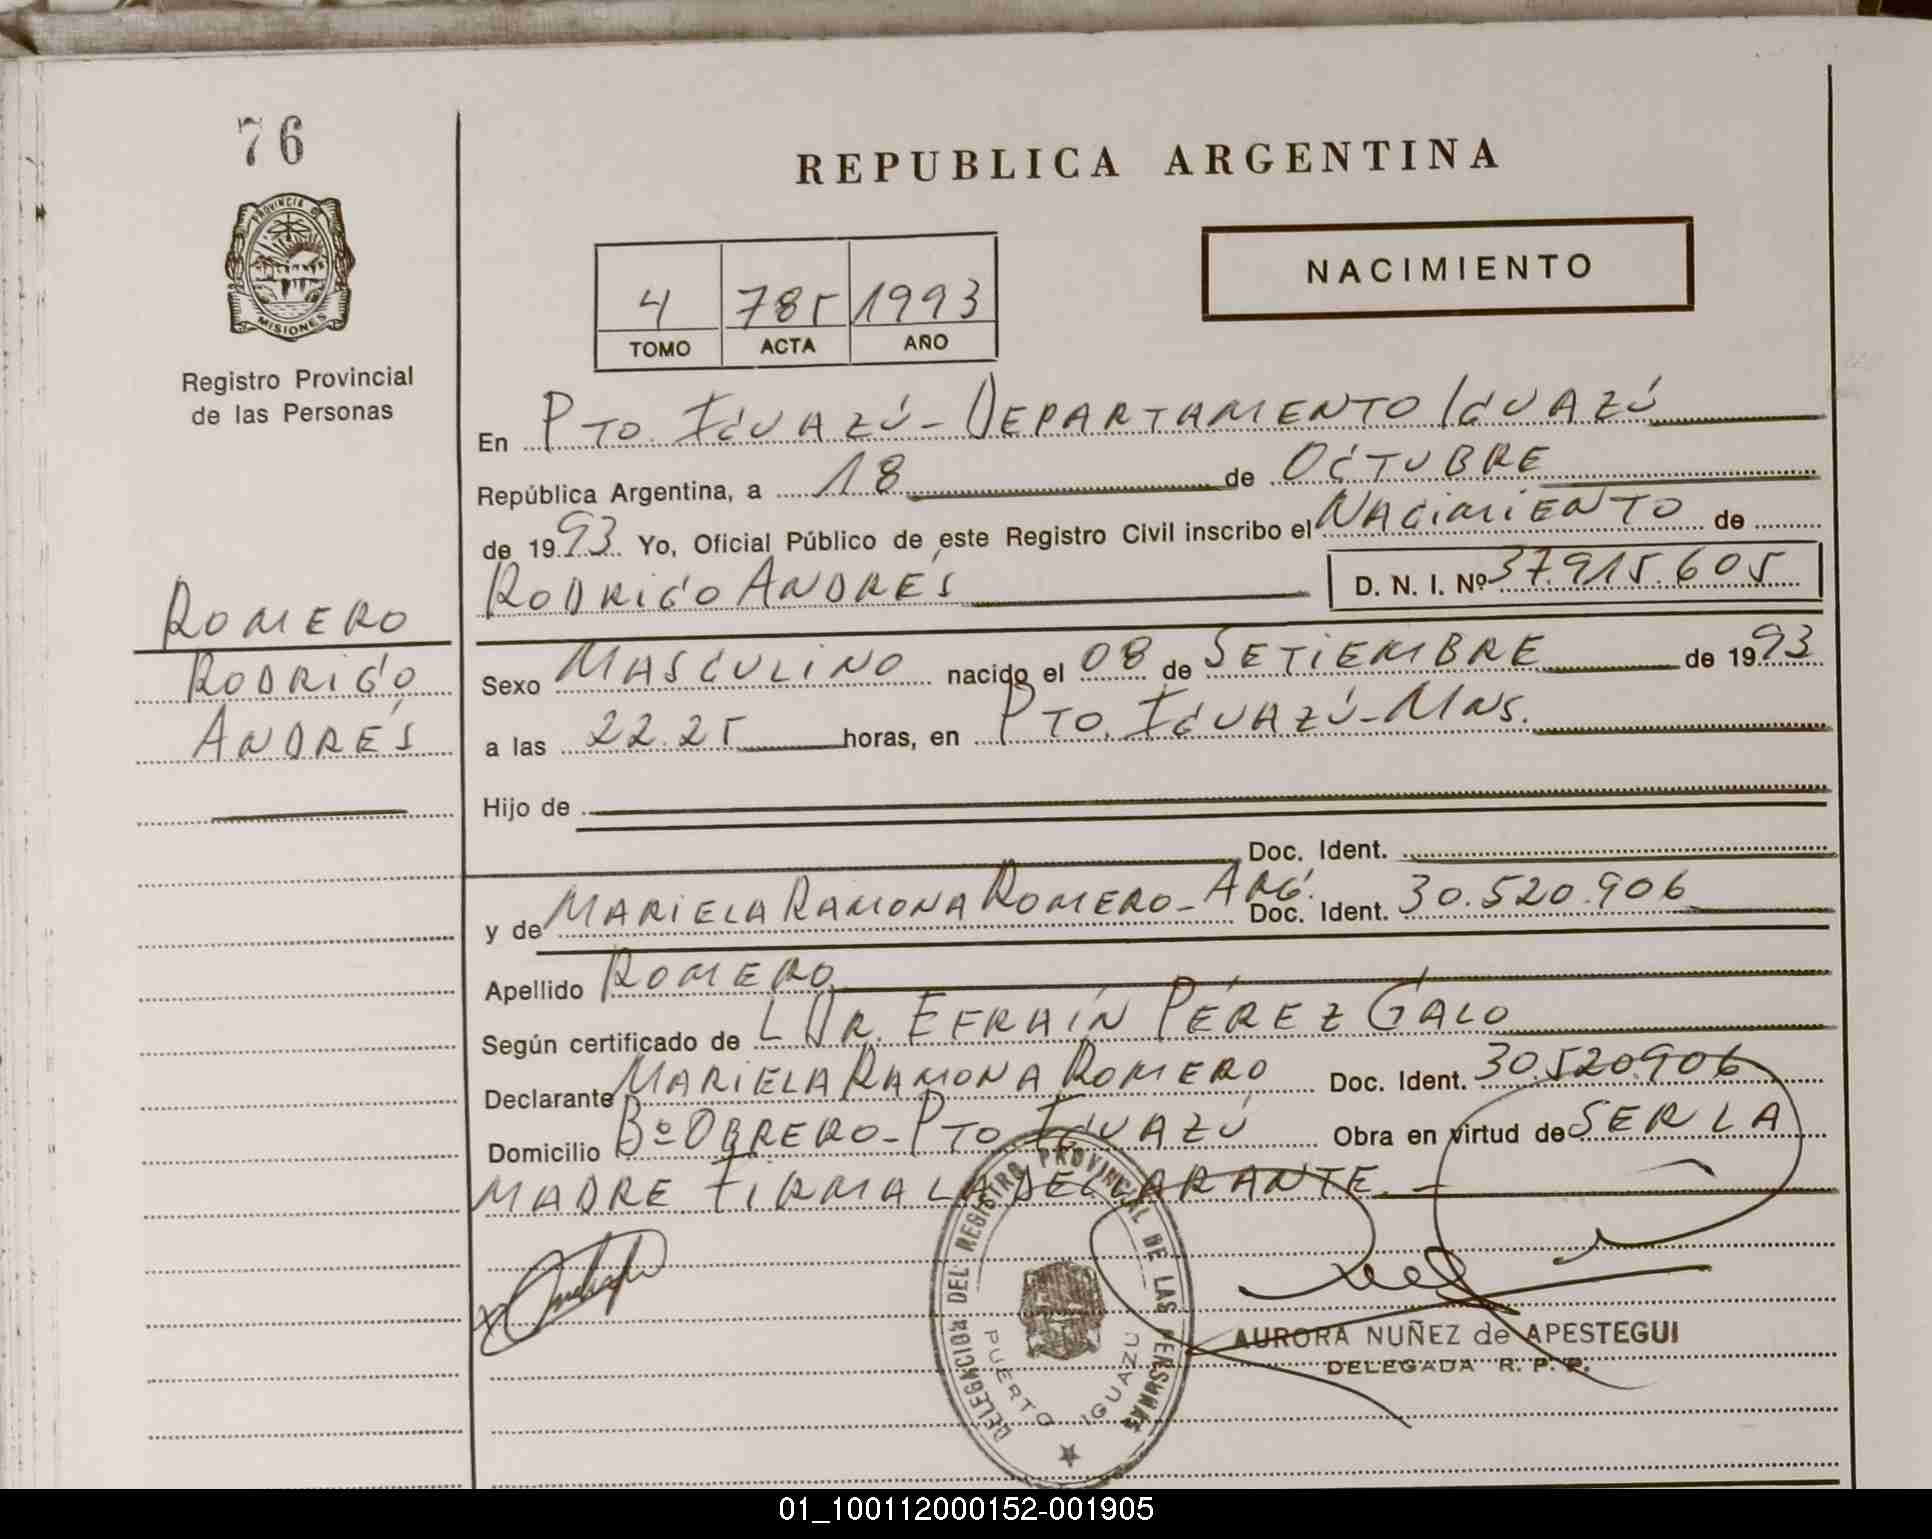 76
REPUBLICA ARGENTINA
PROVINCIA DE
MISIONES
Registro Provincial
de las Personas
NACIMIENTO
4 785 1993
TOMO ACTA AÑO
En PTO. IGUAZÚ - DEPARTAMENTO IGUAZÚ
República Argentina, a 18 de OCTUBRE
de 1993 Yo, Oficial Público de este Registro Civil inscribo el NACIMIENTO de
RODRIGO ANDRÉS D. N. I. Nº 37.915.605
ROMERO
RODRIGO
ANDRÉS
Sexo MASCULINO nacido el 08 de SETIEMBRE de 1993
a las 22.25 horas, en PTO. IGUAZÚ - MNS.
Hijo de
Doc. Ident.
y de MARIELA RAMONA ROMERO - ARG. Doc. Ident. 30.520.906
Apellido ROMERO
Según certificado de L DR. EFRAÍN PÉREZ GALO
Declarante MARIELA RAMONA ROMERO Doc. Ident. 30.520.906
Domicilio Bº OBRERO - PTO IGUAZÚ Obra en virtud de SER LA
MADRE FIRMA LA DECLARANTE. -
DELEGACION DEL REGISTRO PROVINCIAL DE LAS PERSONAS
PUERTO IGUAZU
AURORA NUÑEZ de APESTEGUI
DELEGADA R. P. P.
01_100112000152-001905